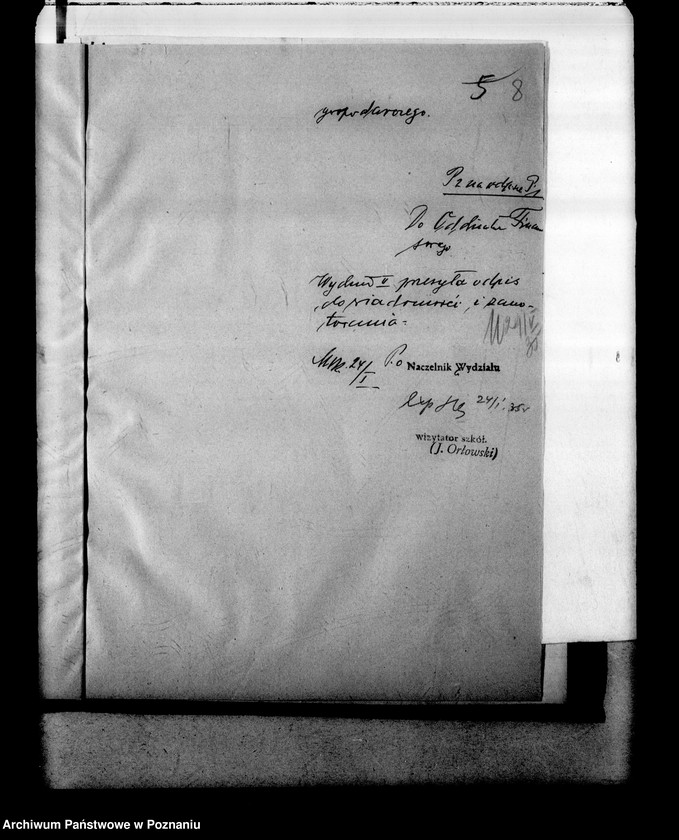 5 8
gospodarczego.
Na odpis
Do Oddziału Finan
sowego
Wydział II przesyła odpis
do wiadomości i zano-
towania.
24/I P.o Naczelnik Wydziału
24/I 35
wizytator szkół.
(J. Orłowski)
Archiwum Państwowe w Poznaniu